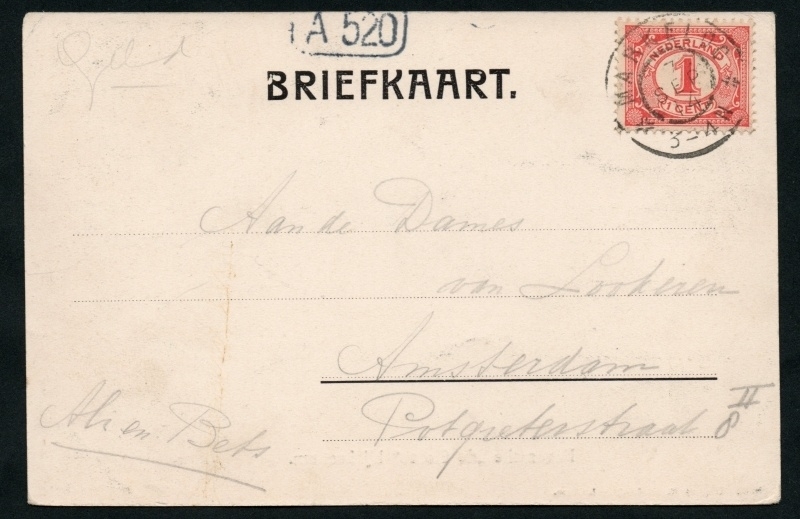 A 520
BRIEFKAART.
NEDERLAND
1
1 CENT
3-4 N
Aan de Dames
van Lookeren
Amsterdam
Potgieterstraat 8 II
Ah en Bets